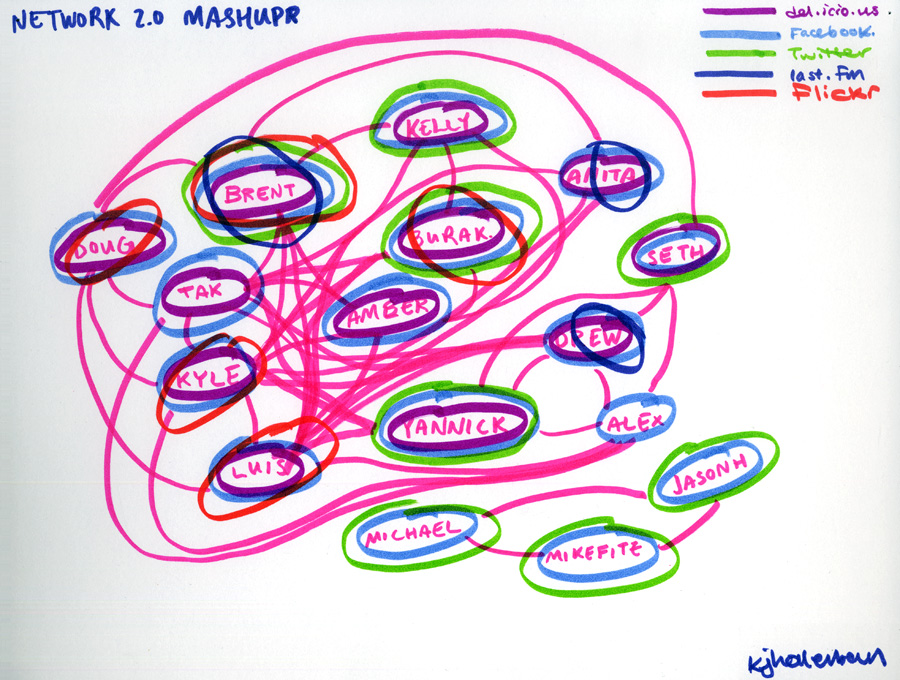 NETWORK 2.0 MASHUPR
del.icio.us.
Facebook.
Twitter
last.fm
Flickr
KELLY
ANITA
BRENT
DOUG
BURAK.
SETH
TAK
AMBER
DREW
KYLE
YANNICK
ALEX
LUIS
JASONH
MICHAEL
MIKEFITZ